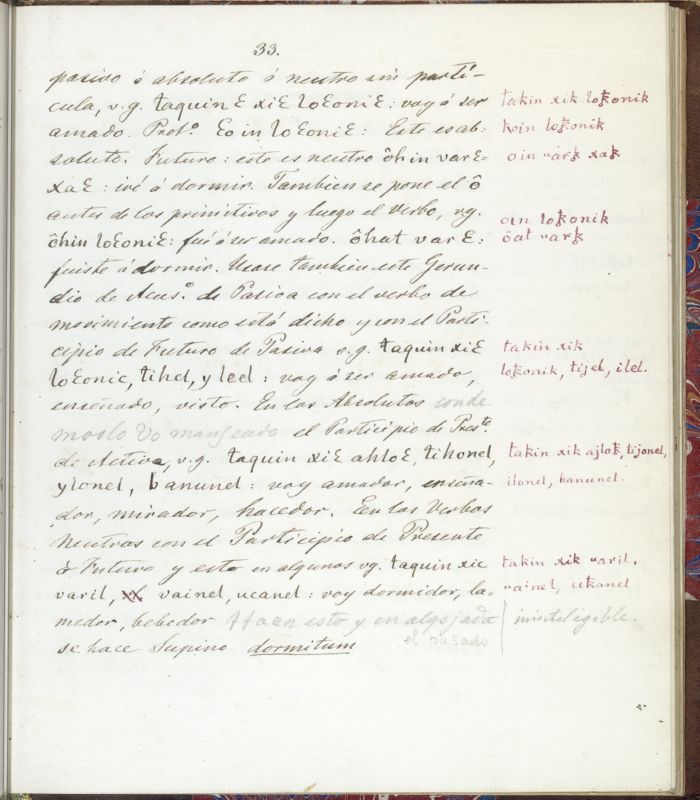 33.
pasivo ó absoluto ó neutro sin partí-
cula, v.g. taquinꜪ xiꜪ loꜪoniꜪ: voy á ser
amado. Pret.º Ꜫo in loꜪoniꜪ: Este es ab-
soluto. Futuro: este es neutro ôh in varꜪ-
xaꜪ: iré á dormir. Tambien se pone el ô
antes de los primitivos y luego el verbo, vg.
ôhin loꜪoniꜪ: fuí á ser amado. ôhat varꜪ:
fuiste á dormir. Usase tambien este Gerun-
dio de Acus.º de Pasiva con el verbo de
movimiento como está dicho y con el Parti-
cipio de Futuro de Pasiva v.g. taquin xiꜪ
loꜪonic, tihel, y leel: voy á ser amado,
enseñado, visto. En los Absolutos
el Participio de Pres.te
de Activa, v.g. taquin xiꜪ ahloꜪ, tihonel,
ylonel, banunel: voy amador, enseña-
dor, mirador, hacedor. En los Verbos
Neutros con el Participio de Presente
ó Futuro y esto en algunos vg. taquin xic
varil, vainel, ucanel: voy dormidor, la-
medor, bebedor Hacen esto y en algojada
el pasado
se hace Supino dormitum
takin xik loꜫonik
ꜫoin loꜫonik
oin varꜫ xaꜫ
oin loꜫonik
öat varꜫ
takin xik
loꜫonik, tijel, ilel.
takin xik ajloꜫ, tijonel,
ilonel, banunel.
takin xik varil,
vainel, ukanel
ininteligible.